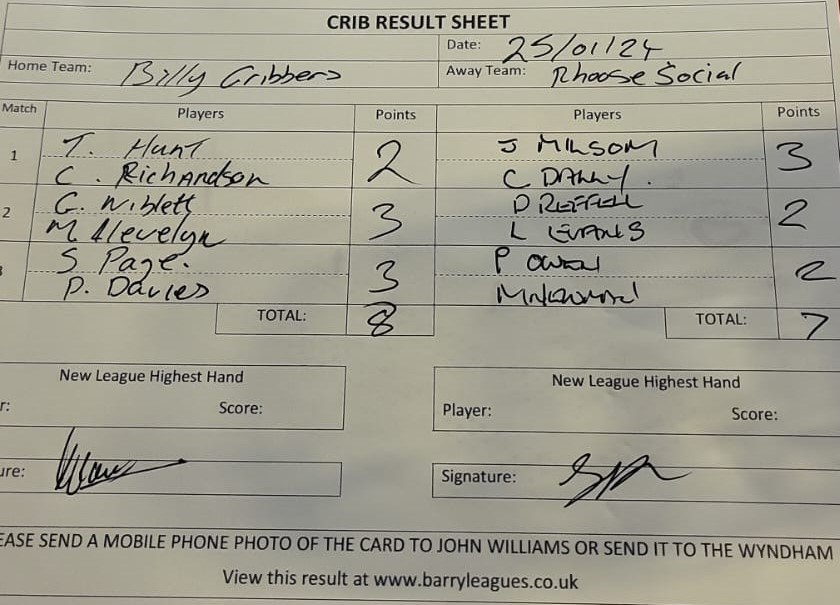 CRIB RESULT SHEET
Date: 25/01/24
Home Team: Billy Cribbers Away Team: Rhoose Social
Match Players Points Players Points
1 T. Hunt 2 J MILSOM 3
C. Richardson C DALLY.
2 G. Niblett 3 D REFFELL 2
M Llevelyn L EVANS
S Page. 3 P OWEN 2
P. Davies
TOTAL: 8 TOTAL: 7
New League Highest Hand New League Highest Hand
r: Score: Player: Score:
ure: Signature:
EASE SEND A MOBILE PHONE PHOTO OF THE CARD TO JOHN WILLIAMS OR SEND IT TO THE WYNDHAM
View this result at www.barryleagues.co.uk